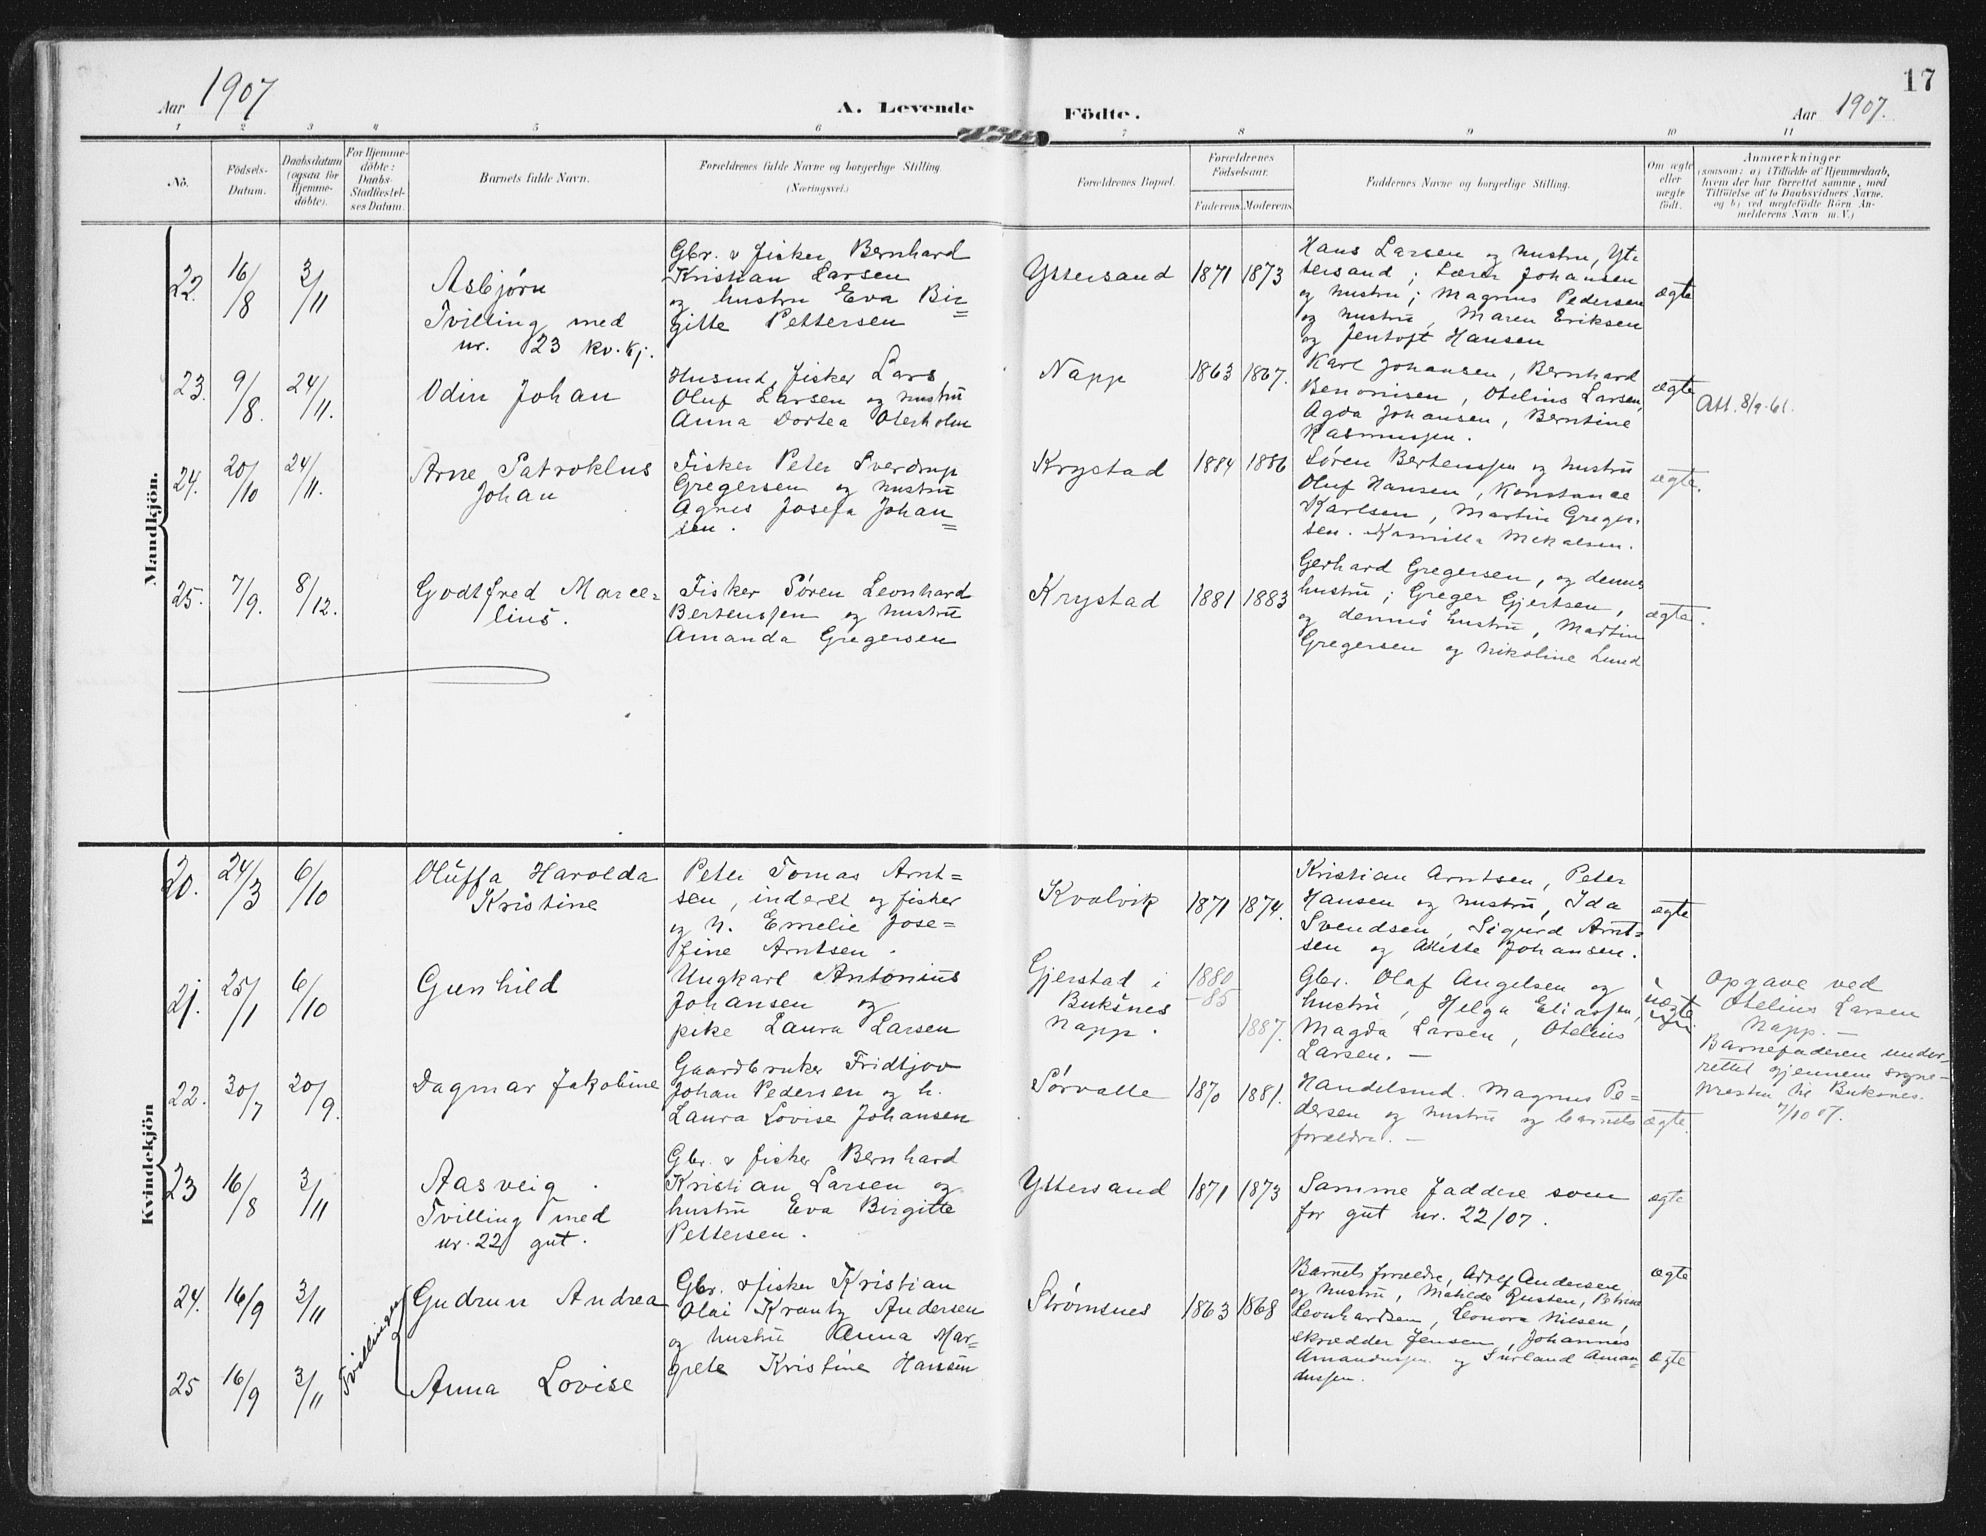 17
Aar 1907
A. Levende Födte.
Aar 1907.
1 2 3 4 5 6 7 8 9 10 11
No.
Födsels-
Datum.
Daabsdatum
(ogsaa for
Hjemme-
döbte).
For Hjemme-
döbte:
Daabs-
Stadfæstel-
ses Datum.
Barnets fulde Navn.
Forældrenes fulde Navne og borgerlige Stilling.
(Næringsvei.)
Forældrenes Bopæl.
Forældrenes
Födselsaar.
Faderens. Moderens.
Faddernes Navne og borgerlige Stilling.
Om ægte
eller
uægte
födt.
Anmærkninger
(saasom: a) i Tilfælde af Hjemmedaab,
hvem der har forrettet samme, med
Tilföielse af to Daabsvidners Navne,
og b) ved uægtefödte Börn An-
melderens Navn m. V.)
Mandkjön.
22. 16/8 3/11
Asbjørn
Tvilling med
nr. 23 kv.kj.
Gbr. & fisker Bernhard
Kristian Larsen
og hustru Eva Bir=
gitte Pettersen
Yttersand 1871 1873
Hans Larsen og hustru, Yt-
tersand; Lærer Johansen
og hustru; Magnus Pedersen
og hustru, Maren Eriksen
og Jentoft Hansen
ægte
23. 9/8. 24/11.
Odin Johan
Husmd, fisker Lars
Oluf Larsen og hustru
Anna Dortea Oterholm
Napp 1863 1867.
Karl Johansen, Bernhard
Benonisen, Otelius Larsen,
Agda Johansen, Berntine
Rasmussen.
ægte
Att. 8/9-61.
24. 20/10 24/11.
Arne Patroklus
Johan
Fisker Peter Sverdrup
Gregersen og hustru
Agnes Josefa Johan=
sen.
Krystad 1884 1886
Søren Bertenssen og hustru
Oluf Hansen, Konstance
Karlsen, Martin Greger-
sen. Kamilla Mekalsen.
ægte.
25. 7/9. 8/12.
Godtfred Marce-
lius.
Fisker Søren Leonhard
Bertenssen og hustru
Amanda Gregersen
Krystad 1881 1883
Gerhard Gregersen, og dennes
hustru; Greger Gjertsen,
og dennes hustru, Martin
Gregersen og Nikoline Lund
ægte.
Kvindekjön
20. 24/3 6/10
Oluffa Harolda
Kristine
Peter Tomas Arnt=
sen, inderst og fisker
og h. Emelie Jose=
fine Arntsen.
Kvalvik 1871 1874.
Kristian Arntsen, Peter
Hansen og hustru, Ida
Svendsen, Sigurd Arnt=
sen og Mette Johansen.
ægte
21. 25/1 6/10
Gunhild
Ungkarl Antonius
Johansen og
pike Laura Larsen
Gjerstad i
Buksnes
Napp.
1880
-85
1887.
Gbr. Olaf Angelsen og
hustru, Helga Eliassen,
Magda Larsen, Otelius
Larsen. —
uægte
Opgave ved
Otelius Larsen
Napp. —
Barnefaderen under-
rettet gjennem sogne-
presten til Buksnes.
7/10 07.
22. 30/7 20/9.
Dagmar Jakobine
Gaardbruker Fridtjov
Johan Pedersen og h.
Laura Lovise Johansen
Sørvalle 1870 1881.
Handelsmd. Magnus Pe=
dersen og hustru og barnets
forældre. —
ægte.
23 16/8 3/11
Aasveig.
Tvilling med
nr. 22 gut.
Gbr. & fisker Bernhard
Kristian Larsen og
hustru Eva Birgitte
Pettersen.
Yttersand 1871 1873
Samme faddere som
for gut nr. 22/07.
ægte
24. 16/9 3/11
Tvillinger
Gudrun Andrea
Gbr. & fisker Kristian
Olai Krantz Andersen
og hustru Anna Mar=
grete Kristine Hansen
Strømsnes 1863 1868
Barnets forældre, Adolf Andersen,
og hustru, Matilde Rusten, Petrine
Leonhardsen, Leonora Nilsen,
skrædder Jensen, Johannes
Amandussen og Surland Aman-
dussen.
ægte
25 16/9 3/11
Anna Lovise
ægte